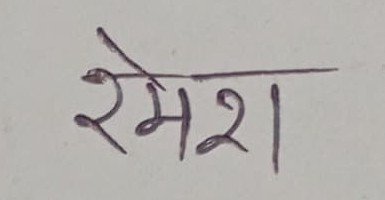 रमेश